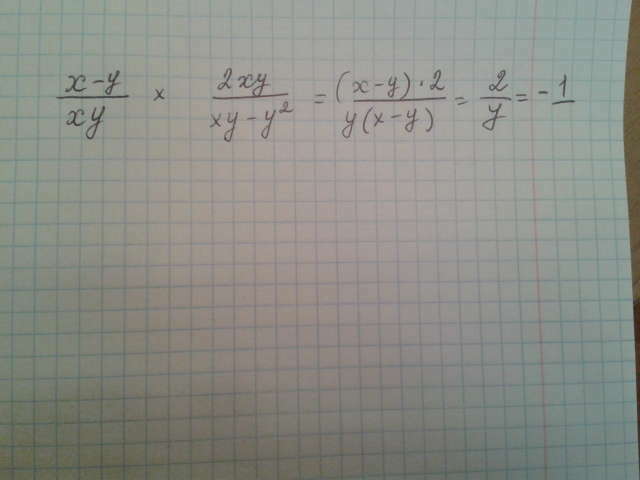 x-y/xy × 2xy/xy-y² = (x-y)·2/y(x-y) = 2/y = -1